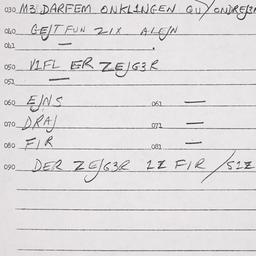 030 M3 DARFEM ONKLINGEN
040 GEJT FUN ZIX ALEJN
041 —
050 VIFL ER ZEJG3R
051 —
060 EJNS 061 —
070 DRAJ 071 —
080 FIR 081 —
090 DER ZEJG3R IZ FIR / SIZ